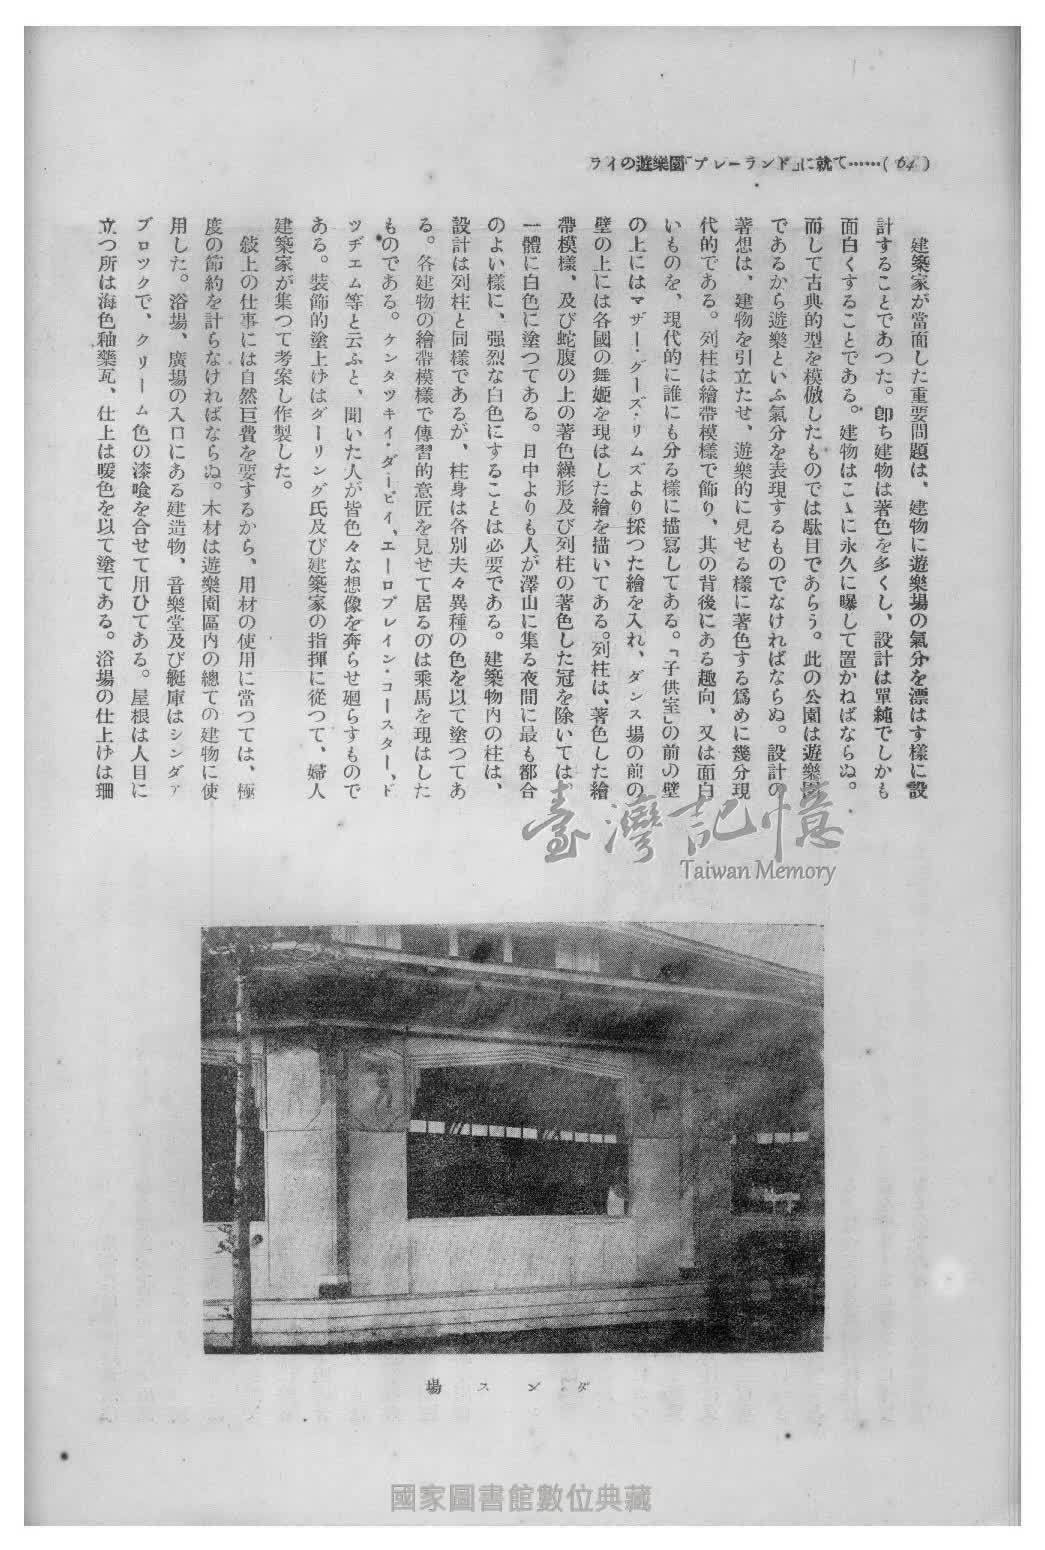 ライの遊樂園「プレーランド」に就て……( 64 )
建築家が當面した重要問題は、建物に遊樂場の氣分を漂はす樣に設
計することであつた。卽ち建物は著色を多くし、設計は單純でしかも
面白くすることである。建物はこゝに永久に曝して置かねばならぬ。
而して古典的型を模倣したものでは駄目であらう。此の公園は遊樂園
であるから遊樂といふ氣分を表現するものでなければならぬ。設計の
著想は、建物を引立たせ、遊樂的に見せる樣に著色する爲めに幾分現
代的である。列柱は繪帶模樣で飾り、其の背後にある趣向、又は面白
いものを、現代的に誰にも分る樣に描寫してある。「子供室」の前の壁
の上にはマザー・グーズ・リムズより採つた繪を入れ、ダンス場の前の
壁の上には各國の舞姬を現はした繪を描いてある。列柱は、著色した繪
帶模樣、及び蛇腹の上の著色繰形及び列柱の著色した冠を除いては
一體に白色に塗つてある。日中よりも人が澤山に集る夜間に最も都合
のよい樣に、强烈な白色にすることは必要である。建築物內の柱は、
設計は列柱と同樣であるが、柱身は各別夫々異種の色を以て塗つてあ
る。各建物の繪帶模樣で傳習的意匠を見せて居るのは乘馬を現はした
ものである。ケンタツキイ・ダービイ、エーロプレイン・コースター、ド
ツヂエム等と云ふと、聞いた人が皆色々な想像を奔らせ廻らすもので
ある。裝飾的塗上げはダーリング氏及び建築家の指揮に從つて、婦人
建築家が集つて考案し作製した。
敍上の仕事には自然巨費を要するから、用材の使用に當つては、極
度の節約を計らなければならぬ。木材は遊樂園區內の總ての建物に使
用した。浴場、廣場の入口にある建造物、音樂堂及び艇庫はシンダァ
ブロツクで、クリーム色の漆喰を合せて用ひてある。屋根は人目に
立つ所は海色釉藥瓦、仕上は暖色を以て塗てある。浴場の仕上げは珊
臺灣記憶
Taiwan Memory
場スンダ
國家圖書館數位典藏